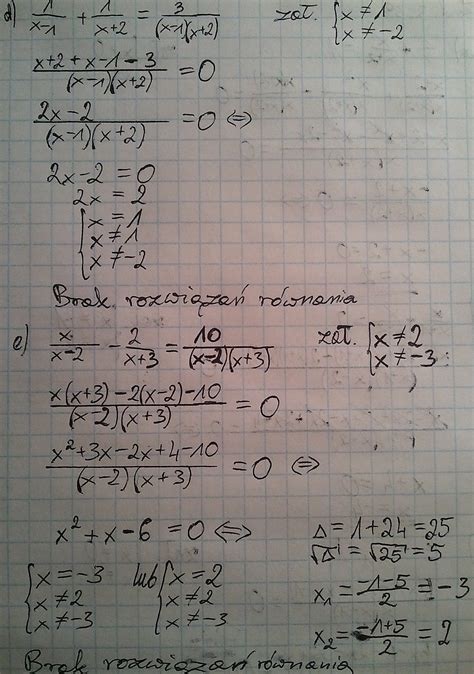 d) 1/(x-1) + 1/(x+2) = 3/((x-1)(x+2)) zał. {x ≠ 1
x ≠ -2
(x+2+x-1-3)/((x-1)(x+2)) = 0
(2x-2)/((x-1)(x+2)) = 0 ⇔
2x-2 = 0
2x = 2
{x = 1
x ≠ 1
x ≠ -2
Brak rozwiązań równania
e) x/(x-2) - 2/(x+3) = 10/((x-2)(x+3)) zał. {x ≠ 2
x ≠ -3
(x(x+3)-2(x-2)-10)/((x-2)(x+3)) = 0
(x²+3x-2x+4-10)/((x-2)(x+3)) = 0 ⇔
x²+x-6 = 0 ⇔ Δ = 1+24 = 25
√Δ = √25 = 5
{x = -3 lub {x = 2 x₁ = (-1-5)/2 = -3
x ≠ 2 x ≠ 2
x ≠ -3 x ≠ -3 x₂ = (-1+5)/2 = 2
Brak rozwiązań równania